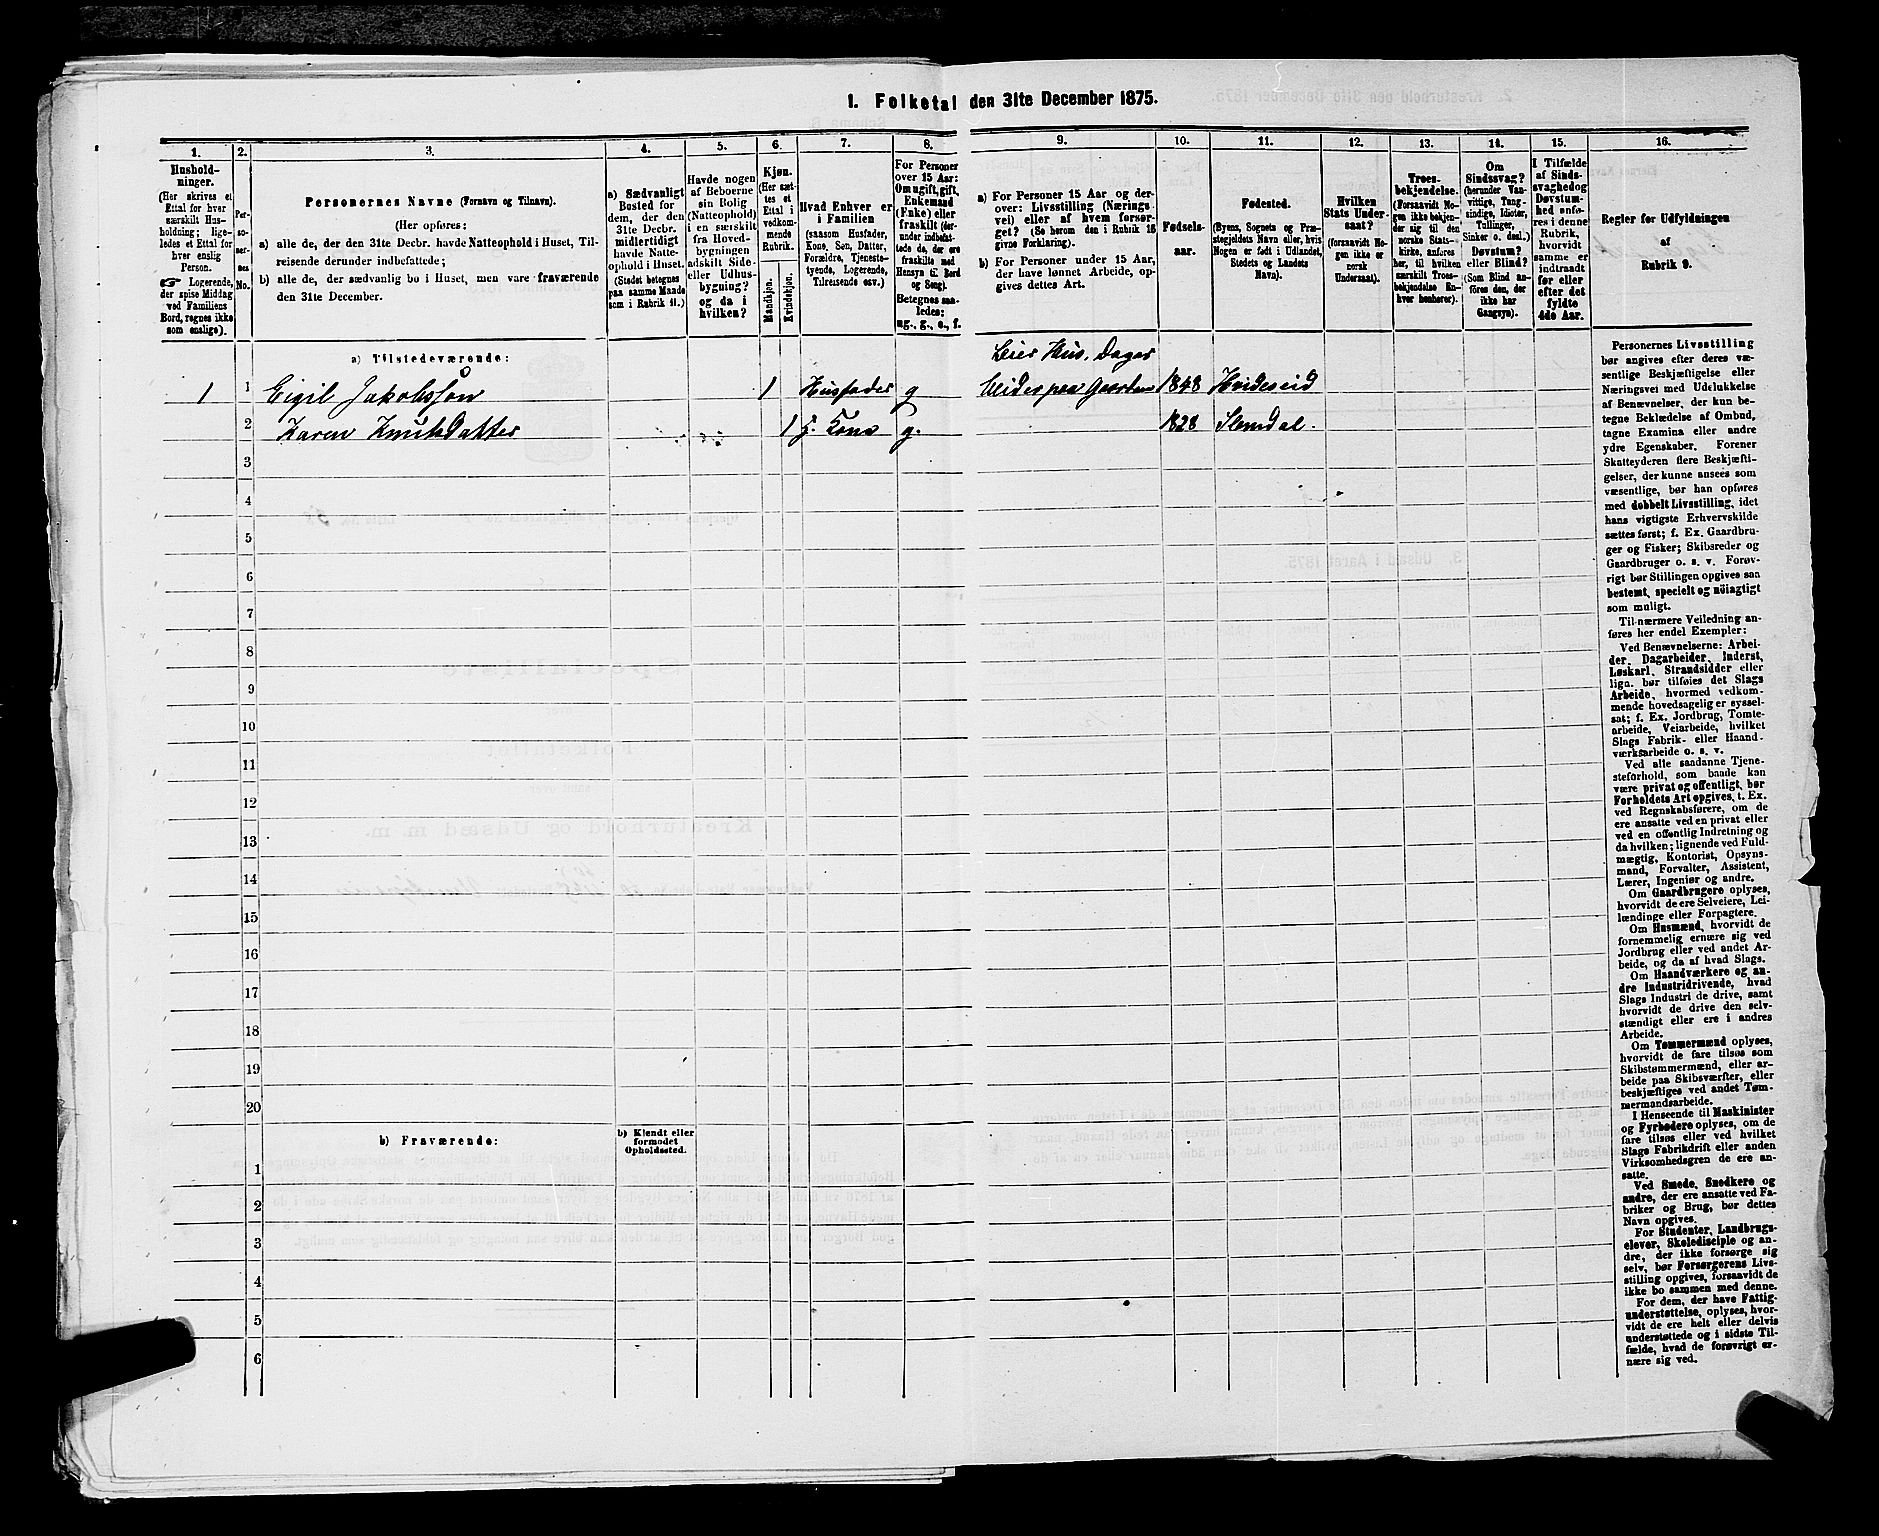 1. Folketal den 31te December 1875.
1.
2.
3.
4.
5.
6.
7.
8.
9.
10.
11.
12.
13.
14.
15.
16.
Husholdninger.
(Her skrives et
Ettal for hver
særskilt Husholdning;
ligeledes et Ettal for
hver enslig
Person.
☞ Logerende,
der spise Middag
ved Familiens
Bord, regnes ikke
som enslige).
Personernes No.
Personernes Navne (Fornavn og Tilnavn).
(Her opføres:
a) alle de, der den 31te Decbr. havde Natteophold i Huset, Tilreisende derunder indbefattede;
b) alle de, der sædvanlig bo i Huset, men vare fraværende
den 31te December.
a) Sædvanligt
Bosted for
dem, der den
31te Decbr.
midlertidigt
havde Natteophold i Huset.
(Stedet betegnes
paa samme Maade
som i Rubrik 11.)
Havde nogen
af Beboerne
sin Bolig
(Natteophold)
i en særskilt
fra Hovedbygningen
adskilt Side-
eller Udhusbygning?
og da i
hvilken?
Kjøn.
(Her sættes et
Ettal i
vedkommende
Rubrik.
Mandkjøn.
Kvindekjøn.
Hvad Enhver er
i Familien
(saasom Husfader,
Kone, Søn, Datter,
Forældre, Tjenestetyende, Logerende,
Tilreisende osv.)
For Personer
over 15 Aar:
Om ugift, gift,
Enkemand
(Enke) eller
fraskilt (derunder indbefattede de, der ere
fraskilte med
Hensyn til Bord
og Seng).
Betegnes saaledes:
ug., g., e., f.
a) For Personer 15 Aar og derover: Livsstilling (Næringsvei) eller af hvem forsørget? (Se herom den i Rubrik 16
givne Forklaring).
b) For Personer under 15 Aar,
der have lønnet Arbeide, opgives dettes Art.
Fødselsaar.
Fødested.
(Byens, Sognets og Præstegjeldets Navn eller, hvis
Nogen er født i Udlandet,
Stedets og Landets
Navn).
Hvilken
Stats Undersaat?
(forsaavidt Nogen ikke er
norsk
Undersaat).
Troesbekjendelse.
(Forsaavidt Nogen ikke bekjender sig til den
norske Statskirke, anføres
her, til hvilken
særskilt Troesbekjendelse Enhver henhører).
Om
Sindssvag?
(herunder Vanvittige, Tungsindige, Idioter,
Tullinger,
Sinker o. desl.)
Døvstum?
eller Blind?
(Som Blind anføres den, der
ikke har
Gangsyn).
I Tilfælde
af Sindssvaghed og
Døvstumhed anføres i denne
Rubrik,
hvorvidt
samme er
indtraadt
før eller
efter det
fyldte
4de Aar.
Regler for Udfyldningen
af
Rubrik 9.
a) Tilstedeværende:
Leier Hus. Dagar
1 1 Eigil Jakobssøn 1 Husfader g 1848 Hvideseid
2 Karen Knutsdatter 1 h. Kone g. 1828 Slemdal.
3
4
5
6
7
8
9
10
11
12
13
14
15
16
17
18
19
20
b) Fraværende:
b) Kjendt eller
formodet
Opholdssted.
1
2
3
4
5
6
Personernes Livsstilling
bør angives efter deres væsentlige Beskjæftigelse eller
Næringsvei med Udelukkelse
af Benævnelser, der kun betegne Beklædelse af Ombud,
tagne Examina eller andre
ydre Egenskaber. Forener
Skatteyderen flere Beskjæftigelser, der kunne ansees som
væsentlige, bør han opføres
med dobbelt Livsstilling, idet
hans vigtigste Erhvervskilde
sættes først; f. Ex. Gaardbruger og Fisker; Skibsreder og
Gaardbruger o. s. v. Forøvrigt bør Stillingen opgives saa
bestemt, specielt og nöiagtigt
som muligt.
Til nærmere Veiledning anføres her endel Exempler:
Ved Benævnelserne: Arbeider, Dagarbeider, Inderst,
Løskarl, Strandsidder eller
lign. bør tilføies det Slags
Arbeide, hvormed vedkommende hovedsagelig er sysselsat; f. Ex. Jordbrug, Tomtearbeide, Veiarbeide, hvilket
Slags Fabrik- eller Haandværksarbeide o. s. v.
Ved alle saadanne Tjenesteforhold, som baade kan
være privat og offentligt, bør
Forholdets Art opgives, t. Ex.
ved Regnskabsførere, om de
ere ansatte ved en privat eller
ved en offentlig Indretning og
da hvilken; lignende ved Fuldmægtig, Kontorist, Opsynsmand, Forvalter, Assistent,
Lærer, Ingeniør og andre.
Om Gaardbrugere oplyses,
hvorvidt de ere Selveiere, Leilændinge eller Forpagtere.
Om Husmænd, hvorvidt de
fornemmelig ernære sig ved
Jordbrug eller ved andet Arbeide, og da af hvad Slags.
Om Haandværkere og andre Industridrivende, hvad
Slags Industri de drive, samt
hvorvidt de drive den selvstændigt eller ere i andres
Arbeide.
Om Tømmermænd oplyses,
hvorvidt de fare tilsøs som
Skibstømmermænd, eller arbeide paa Skibsværfter, eller
beskjæftiges ved andet Tømmermandsarbeide.
I Henseende til Maskinister
og Fyrbødere oplyses, om de
fare tilsøs eller ved hvilket
Slags Fabrikdrift eller anden
Virksomhedsgren de ere ansatte.
Ved Smede, Snedkere og
andre, der ere ansatte ved Fabriker og Brug, bør dettes
Navn opgives.
For Studenter, Landbrugselever, Skoledisciple og andre, der ikke forsørge sig
selv, bør Forsørgerens Livsstilling opgives, forsaavidt de
ikke bo sammen med denne.
For dem, der have Fattigunderstøttelse, oplyses, hvorvidt de ere helt eller delvis
understøttede og i sidste Tilfælde, hvad de forøvrigt ernære sig ved.